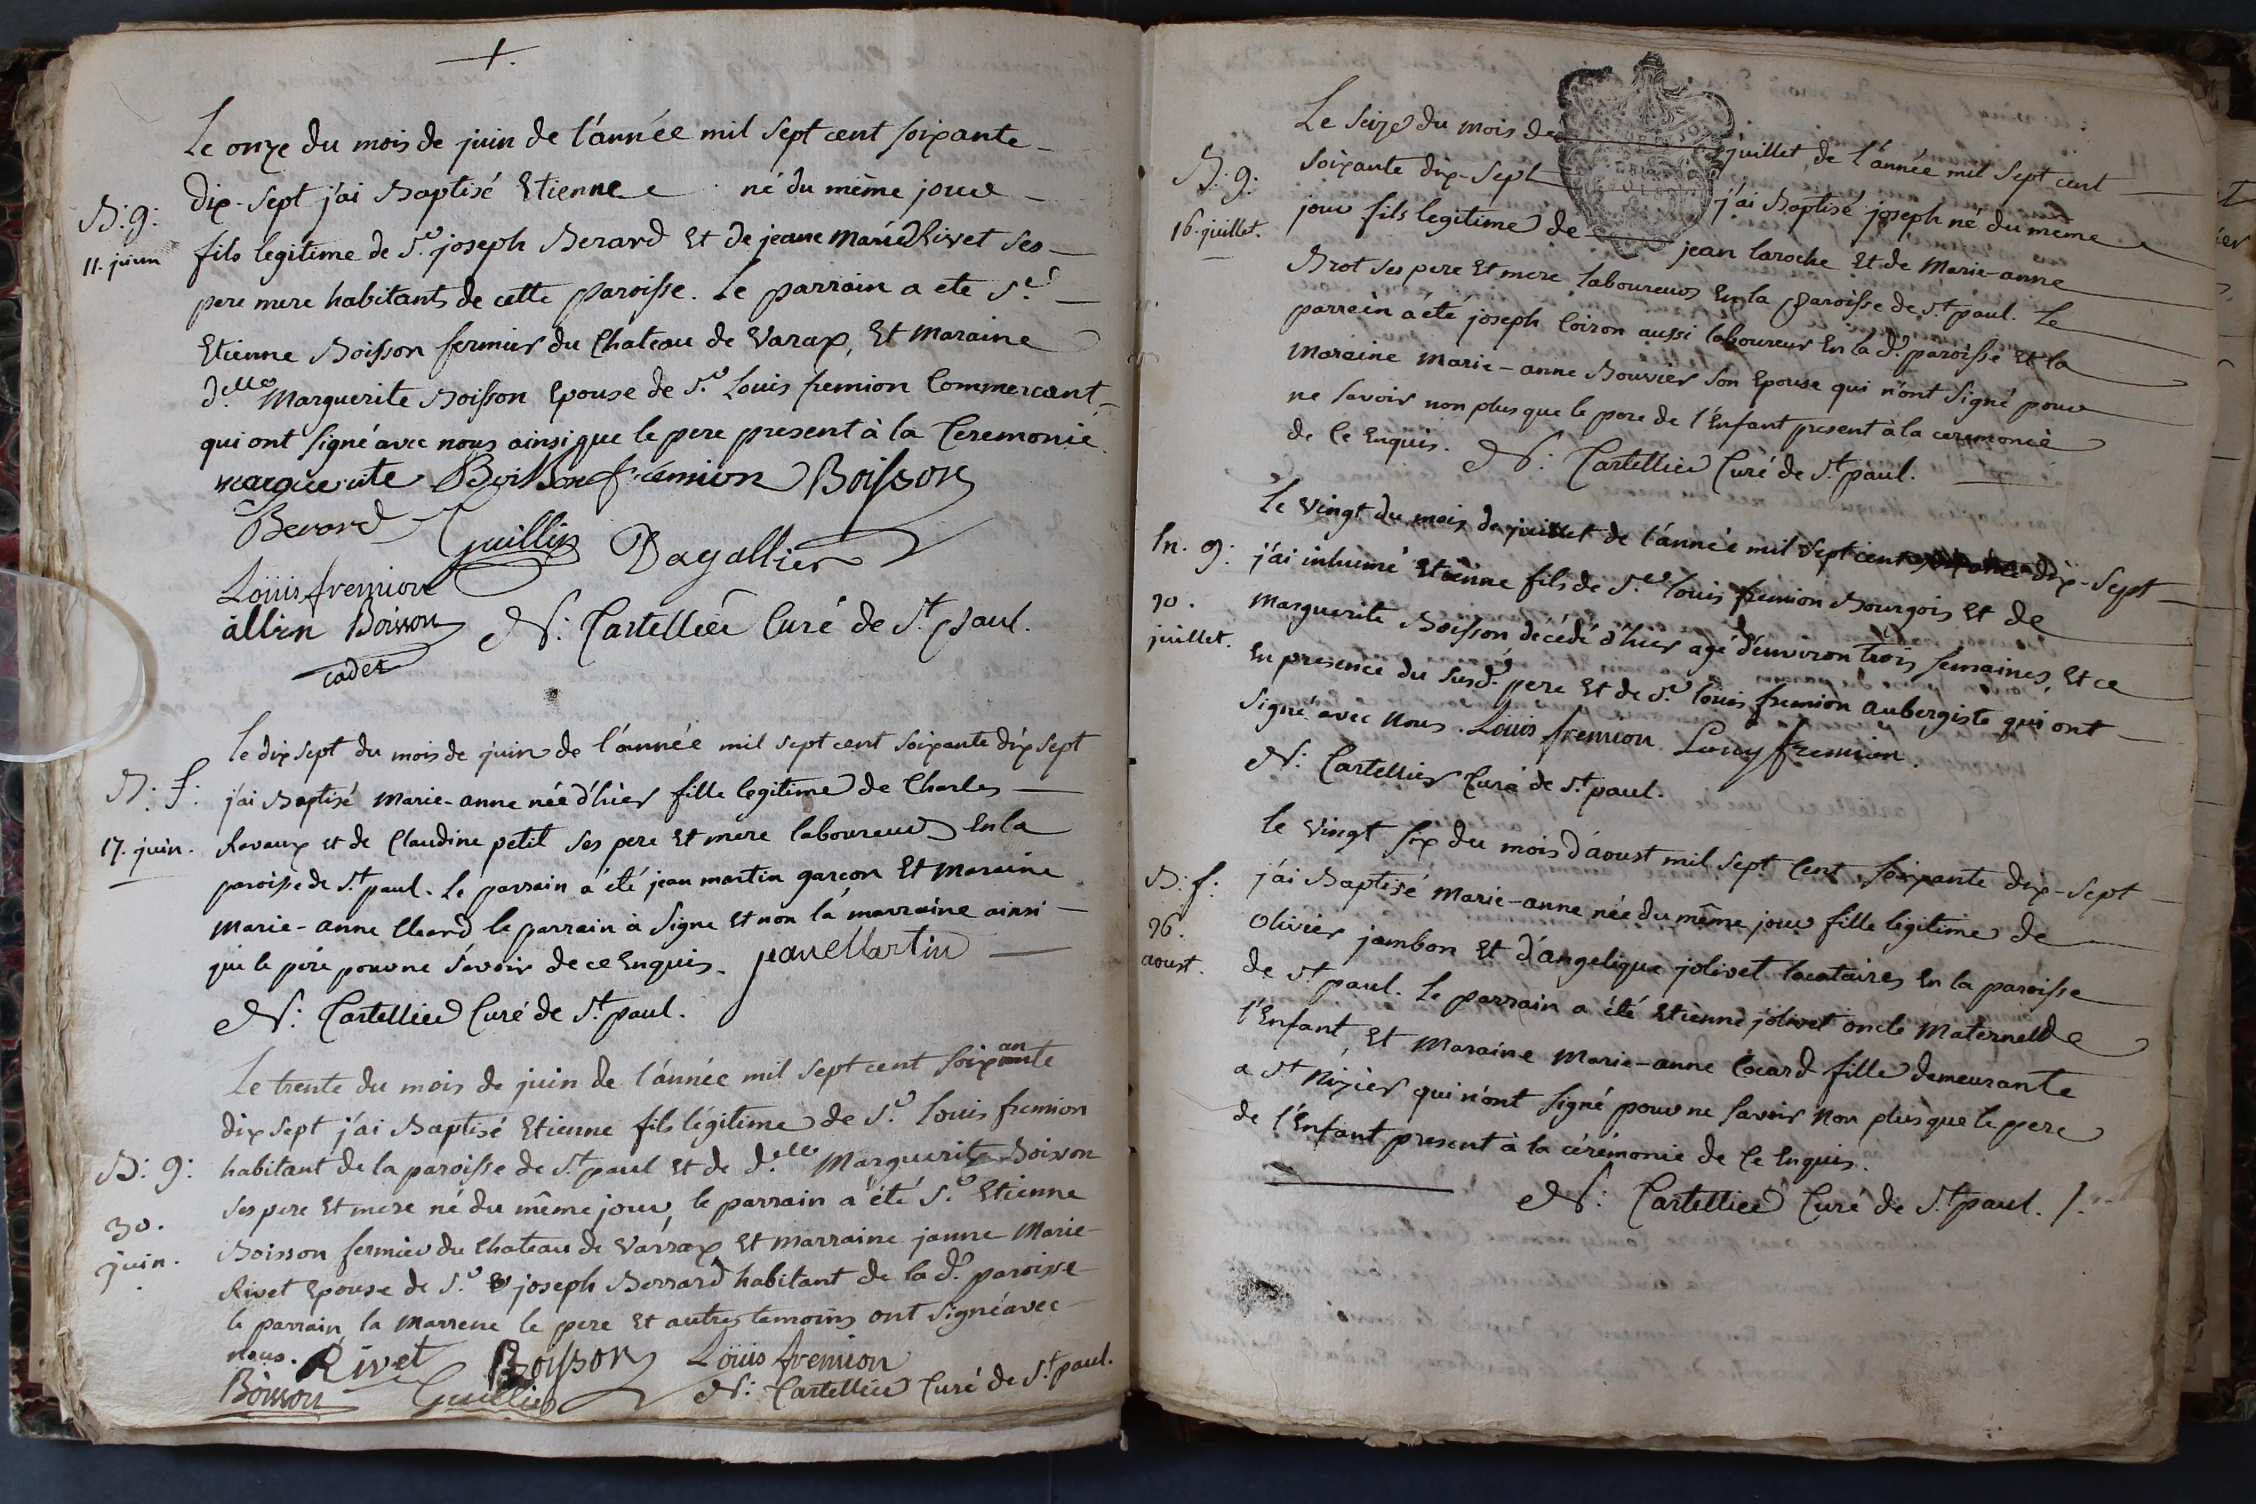 +.
Le onze du mois de juin de l'année mil sept cent soixante
dix-sept j'ai Baptisé Etienne né du même jour
B: g:
11. juin
fils legitime de Sr. joseph Berard Et de jeane Marie Rivet ses
pere mere habitants de cette paroisse. Le parrain a ete Sr.
Etienne Boisson fermier du Chateau de Varax, Et Maraine
delle Marguerite Boisson Epouse de Sr. Louis fremion Commercant,
qui ont signé avec nous ainsi que le pere present à la Ceremonie.
marguerite Boisson fremion Boisson
Berard Guillin Dagallier
Loüis fremion
Boisson N: Cartellier Curé de St. paul.
cadet
Le dix sept du mois de juin de l'année mil sept cent soixante dix sept
B: f:
j'ai Baptisé Marie-anne née d'hier fille legitime de Charles
17. juin.
Ravaux et de Claudine petit ses pere Et mere laboureur En la
paroisse de St. paul. Le parrain a été jean martin garcon Et Maraine
Marie-anne le parrain à signe et non la marraine ainsi
que le pere pour ne sçavoir de ce Enquis. jean Martin
N: Cartellier Curé de St. paul.
Le trente du mois de juin de l'année mil sept cent soixante
an
dix sept j'ai Baptisé Etienne fils légitime de Sr. Louis fremion
B: g:
habitant de la paroisse de St. paul et de delle Marguerite Boisson
ses pere Et mere né du même jour, le parrain a été Sr. Etienne
30.
juin.
Boisson fermier du Chateau de Varrax Et marraine janne Marie
Rivet Epouse de Sr. joseph Berrard habitant de la d. paroisse
le parrain la marrene le pere Et autres temoins ont signé avec
nous. Rivet Boisson Loüis fremion
Boisson Guillin N: Cartellier Curé de St. paul.
Le seize du mois de juillet de l'année mil sept cent
B: g:
soixante dix-sept j'ai Baptisé joseph né du même
16. juillet.
jour fils legitime de jean laroche Et de Marie-anne
Brot ses pere Et mere laboureurs En la paroisse de St. paul. Le
parrein a été joseph Coiron aussi laboureur En la d. paroisse Et la
Maraine Marie-anne Bouvier son Epouse qui n'ont signé pour
ne savoir non plus que le pere de l'Enfant present à la ceremonie
de Ce Enquis. N: Cartellier Curé de St. paul.
Le vingt du mois de juillet de l'année mil sept cent soixante dix-sept
In. g:
j'ai inhumé Etienne fils de Sr. louis fremion Bourgois Et de
20.
juillet.
Marguerite Boisson décédé d'hier agé d'environ trois semaines, Et ce
En presence du susd. pere Et de Sr. louis fremion aubergiste qui ont
signé avec nous. Loüis fremion fremion.
N: Cartellier Curé de St. paul.
Le vingt six du mois d'aoust mil sept Cent soixante dix-sept
B: f:
j'ai Baptisé Marie-anne née du même jour fille légitime de
26.
aoust.
Olivier jambon Et d'angelique jolivet locataires En la paroisse
de St paul. Le parrain a été Etienne jolivet oncle Maternel de
l'Enfant, Et Maraine Marie-anne Cocard fille demeurante
a St Nizier qui n'ont signé pour ne savoir non plus que le pere
de l'Enfant present à la cérémonie de Ce Enquis.
N: Cartellier Curé de St. paul. /.